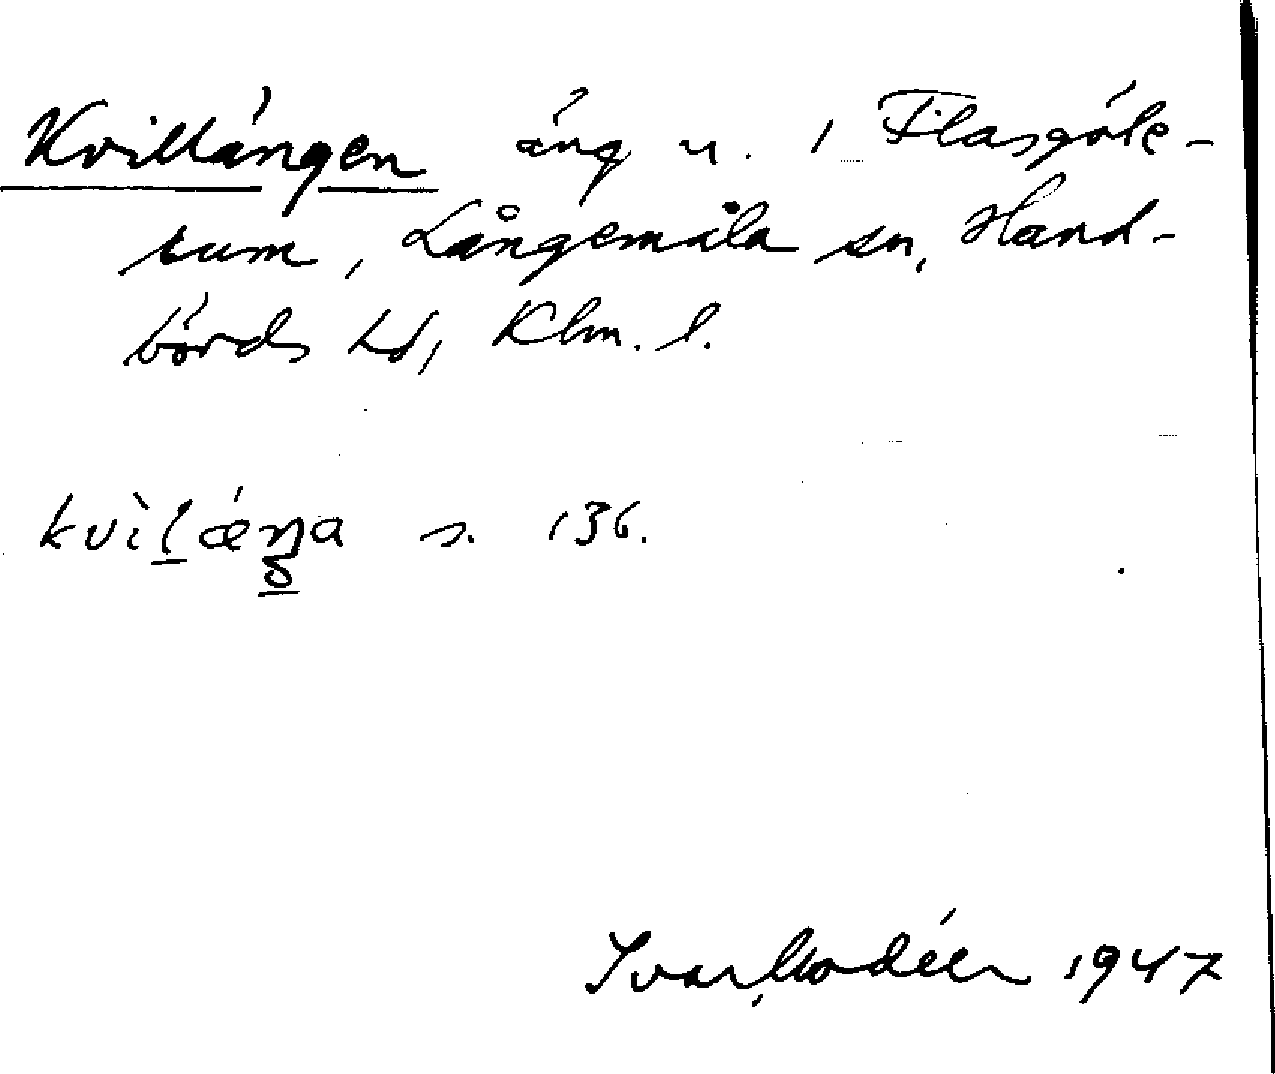 Kvillängen äng n. i Flasgöle-
rum, Långemåla sn, Hand-
börds hd, Klm. l.
kvìḻǽŋa s. 136.
Ivar Modéer 1947